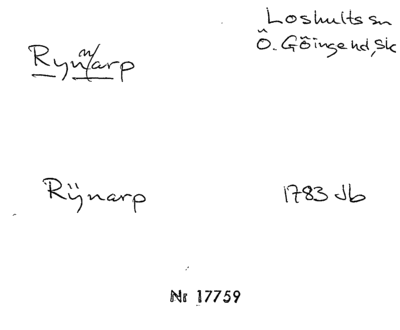 Loshults sn
Ö. Göinge hd, Sk
Rynnarp
Rÿnarp
1783 Jb
Nr 17759